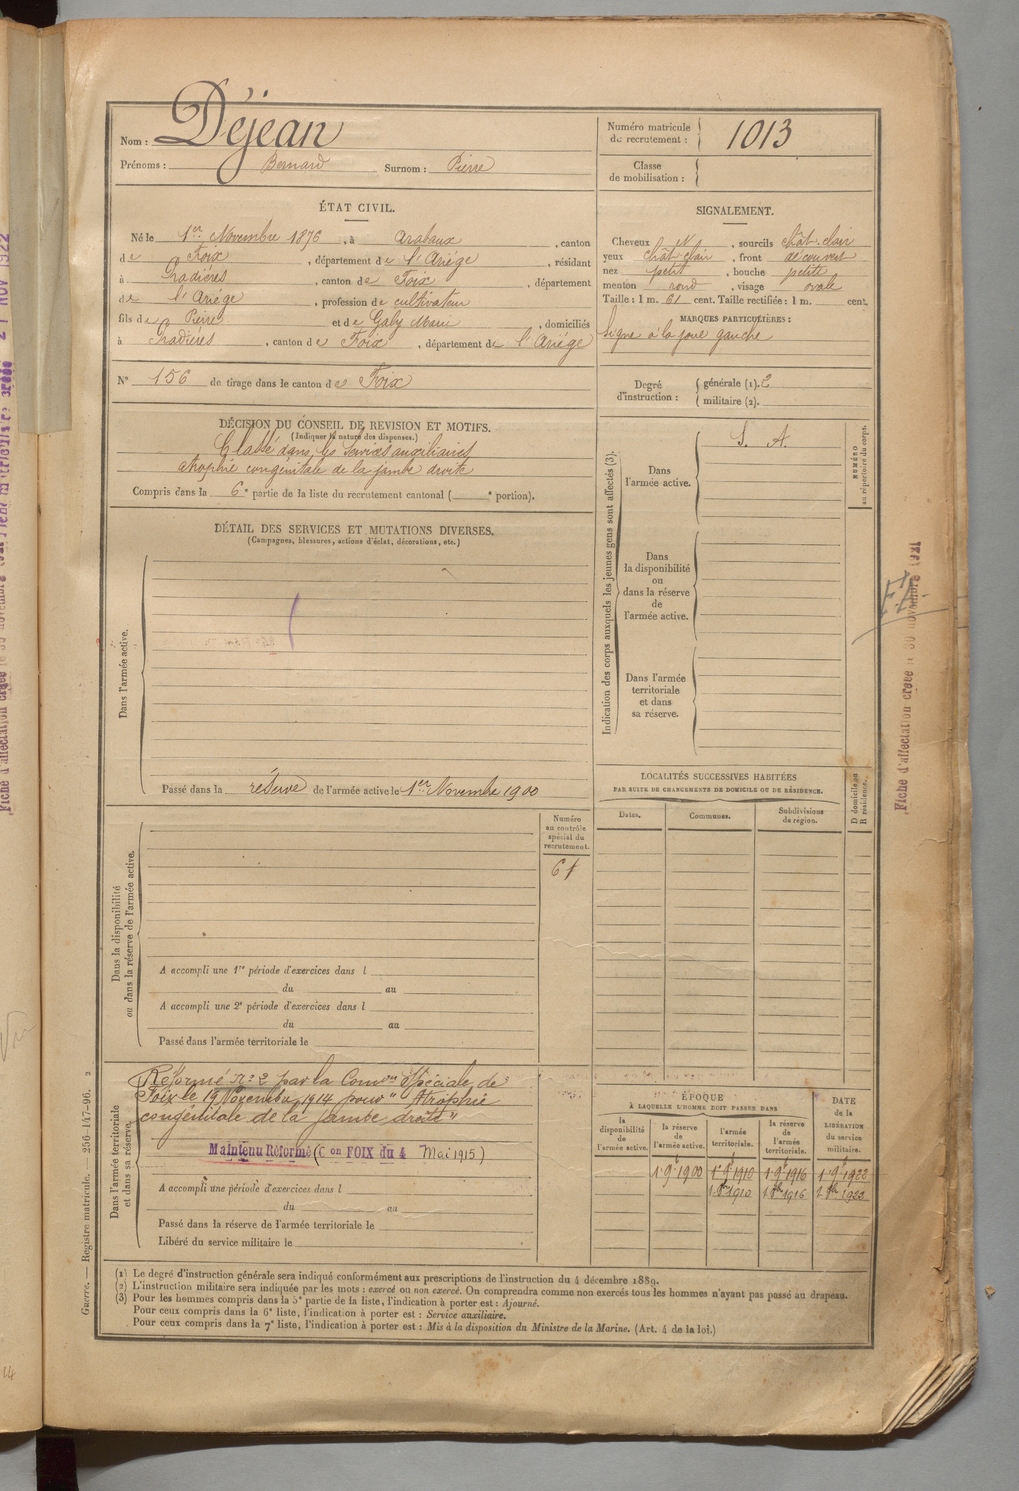 Nom : Déjean
Prénoms : Bernard Surnom : Pierre
Numéro matricule du recrutement : 1013
Classe de mobilisation :
ÉTAT CIVIL.
Né le 1er Novembre 1876, à Arabaux, canton
de Foix, département de l'Ariége, résidant
à Pradières, canton de Foix, département
de l'Ariége, profession de cultivateur
fils de Pierre et de Galy Marie, domiciliés
à Pradières, canton de Foix, département de l'Ariége
N° 156 de tirage dans le canton de Foix
SIGNALEMENT.
Cheveux N, sourcils chât. clair
yeux chât clair, front découvert
nez petit, bouche petite
menton rond, visage ovale
Taille : 1 m. 61 cent. Taille rectifiée : 1 m. cent.
MARQUES PARTICULIÈRES :
Signe à la joue gauche
Degré d'instruction : générale (1). 2
militaire (2).
DÉCISION DU CONSEIL DE REVISION ET MOTIFS.
(Indiquer la nature des dispenses.)
Classé dans les Services auxiliaires
atrophie congénitale de la jambe droite
Compris dans la 6e partie de la liste du recrutement cantonal ( e portion).
DÉTAIL DES SERVICES ET MUTATIONS DIVERSES.
(Campagnes, blessures, actions d'éclat, décorations, etc.)
Dans l'armée active.
Passé dans la réserve de l'armée active le 1er Novembre 1900
Indication des corps auxquels les jeunes gens sont affectés (3).
Dans l'armée active.
S. A.
NUMÉRO au répertoire du corps.
Dans la disponibilité ou dans la réserve de l'armée active.
Dans l'armée territoriale et dans sa réserve.
LOCALITÉS SUCCESSIVES HABITÉES
PAR SUITE DE CHANGEMENTS DE DOMICILE OU DE RÉSIDENCE.
Dates.
Communes.
Subdivisions de région.
D domicile ou R résidence.
Numéro au contrôle spécial du recrutement.
61
Dans la disponibilité ou dans la réserve de l'armée active.
A accompli une 1re période d'exercices dans l
du au
A accompli une 2e période d'exercices dans l
du au
Passé dans l'armée territoriale le
Dans l'armée territoriale et dans sa réserve.
Réformé n° 2 par la Comon Spéciale de
Foix le 19 Novembre 1914 pour "Atrophie
congénitale de la jambe droite"
Maintenu Réformé (Con FOIX du 4 Mai 1915)
A accompli une période d'exercices dans l
du au
Passé dans la réserve de l'armée territoriale le
Libéré du service militaire le
ÉPOQUE
À LAQUELLE L'HOMME DOIT PASSER DANS
la disponibilité de l'armée active.
la réserve de l'armée active.
l'armée territoriale.
la réserve de l'armée territoriale.
DATE de la LIBÉRATION du service militaire.
1 9e 1900 1 9e 1910 1 9e 1916 1 9e 1922
1910 1916 1922
(1) Le degré d'instruction générale sera indiqué conformément aux prescriptions de l'instruction du 4 décembre 1889.
(2) L'instruction militaire sera indiquée par les mots : exercé ou non exercé. On comprendra comme non exercés tous les hommes n'ayant pas passé au drapeau.
(3) Pour les hommes compris dans la 5e partie de la liste, l'indication à porter est : Ajourné.
Pour ceux compris dans la 6e liste, l'indication à porter est : Service auxiliaire.
Pour ceux compris dans la 7e liste, l'indication à porter est : Mis à la disposition du Ministre de la Marine. (Art. 4 de la loi.)
Guerre. — Registre matricule. — 256-147-96. 2
Fiche d'affectation créée le 30 novembre 1921